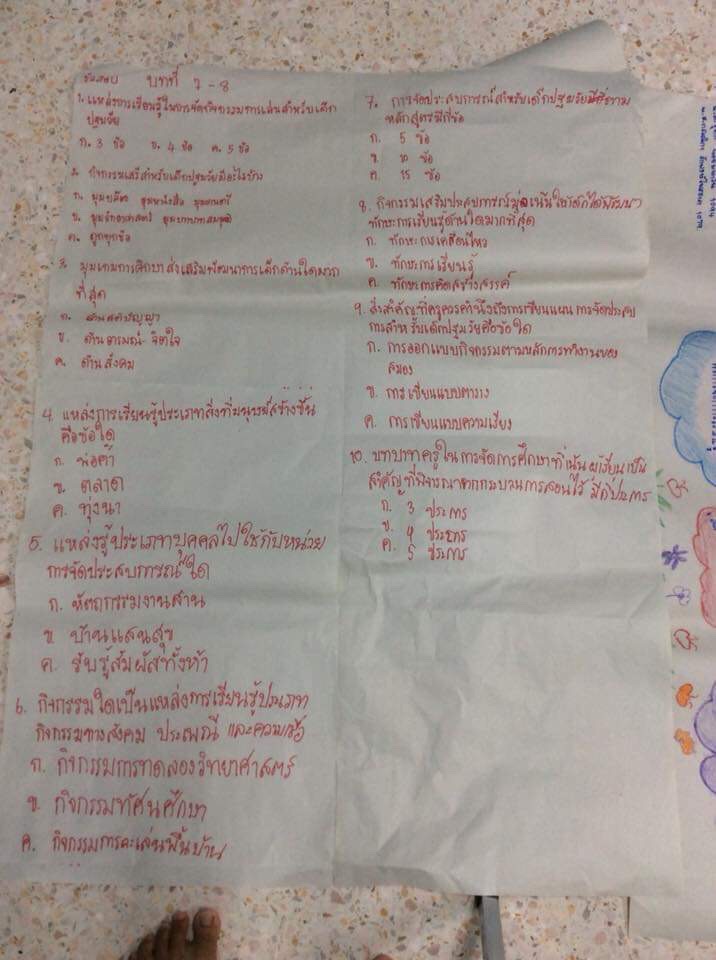 ข้อสอบ บทที่ 7 - 8
1. แหล่งการเรียนรู้ในการจัดกิจกรรมการเล่นสำหรับเด็ก
ปฐมวัย
ก. 3 ข้อ ข. 4 ข้อ ค. 5 ข้อ
2. กิจกรรมเสรีสำหรับเด็กปฐมวัยมีอะไรบ้าง
ก. มุมบล็อก มุมหนังสือ มุมดนตรี
ข. มุมวิทยาศาสตร์ มุมบทบาทสมมุติ
ค. ถูกทุกข้อ
3. มุมเกมการศึกษาส่งเสริมพัฒนาการเด็กด้านใดมาก
ที่สุด
ก. ด้านสติปัญญา
ข. ด้านอารมณ์- จิตใจ
ค. ด้านสังคม
4. แหล่งการเรียนรู้ประเภทสิ่งที่มนุษย์สร้างขึ้น
คือข้อใด
ก. พ่อค้า
ข. ตลาด
ค. ทุ่งนา
5. แหล่งรู้ประเภทบุคคลไปใช้กับหน่วย
การจัดประสบการณ์ใด
ก. หัตถกรรมงานสาน
ข. บ้านแสนสุข
ค. รับรู้สัมผัสทั้งห้า
6. กิจกรรมใดเป็นแหล่งการเรียนรู้ประเภท
กิจกรรมทางสังคม ประเพณี และความเชื่อ
ก. กิจกรรมการทดลองวิทยาศาสตร์
ข. กิจกรรมทัศนศึกษา
ค. กิจกรรมการละเล่นพื้นบ้าน
7. การจัดประสบการณ์สำหรับเด็กปฐมวัยมีกี่ตาม
หลักสูตรมีกี่ข้อ
ก. 5 ข้อ
ข. 10 ข้อ
ค. 15 ข้อ
8. กิจกรรมเสริมประสบการณ์มุ่งเน้นให้เด็กได้พัฒนา
ทักษะการเรียนรู้ด้านใดมากที่สุด
ก. ทักษะการเคลื่อนไหว
ข. ทักษะการเรียนรู้
ค. ทักษะการคิดสร้างสรรค์
9. สิ่งสำคัญที่ครูควรคำนึงถึงการเขียนแผน การจัดประสบ
การณ์สำหรับเด็กปฐมวัยคือข้อใด
ก. การออกแบบกิจกรรมตามหลักการทำงานของ
สมอง
ข. การเขียนแบบตาราง
ค. การเขียนแบบความเรียง
10. บทบาทครูในการจัดการศึกษาที่เน้นผู้เรียนเป็น
สำคัญที่พิจารณาจากกระบวนการสอนไว้ มีกี่ประการ
ก. 3 ประการ
ข. 4 ประการ
ค. 5 ประการ